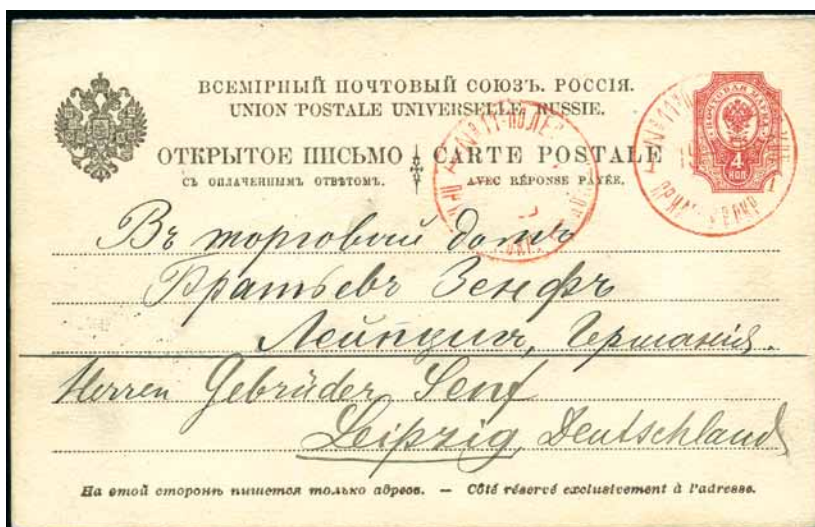 ВСЕМІРНЫЙ ПОЧТОВЫЙ СОЮЗЪ. РОССІЯ.
UNION POSTALE UNIVERSELLE. RUSSIE.
ОТКРЫТОЕ ПИСЬМО
СЪ ОПЛАЧЕННЫМЪ ОТВѢТОМЪ.
CARTE POSTALE
AVEC RÉPONSE PAYÉE.
ПОЧТОВАЯ МАРКА
4
КОП
Въ торговый домъ
Братьевъ Зенфъ
Лейпцигъ, Германія.
Herren Gebrüder Senf
Leipzig, Deutschland
На этой сторонѣ пишется только адресъ. — Côté réservé exclusivement à l'adresse.